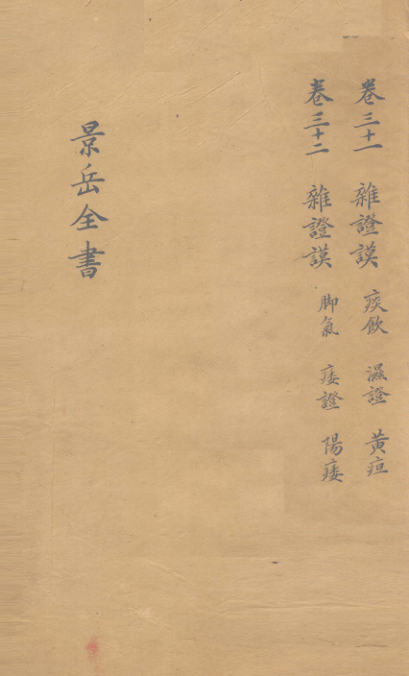 卷三十一 雜證謨 痰飲 濕證 黃疸
卷三十二 雜證謨 脚氣 痿證 陽痿
景岳全書